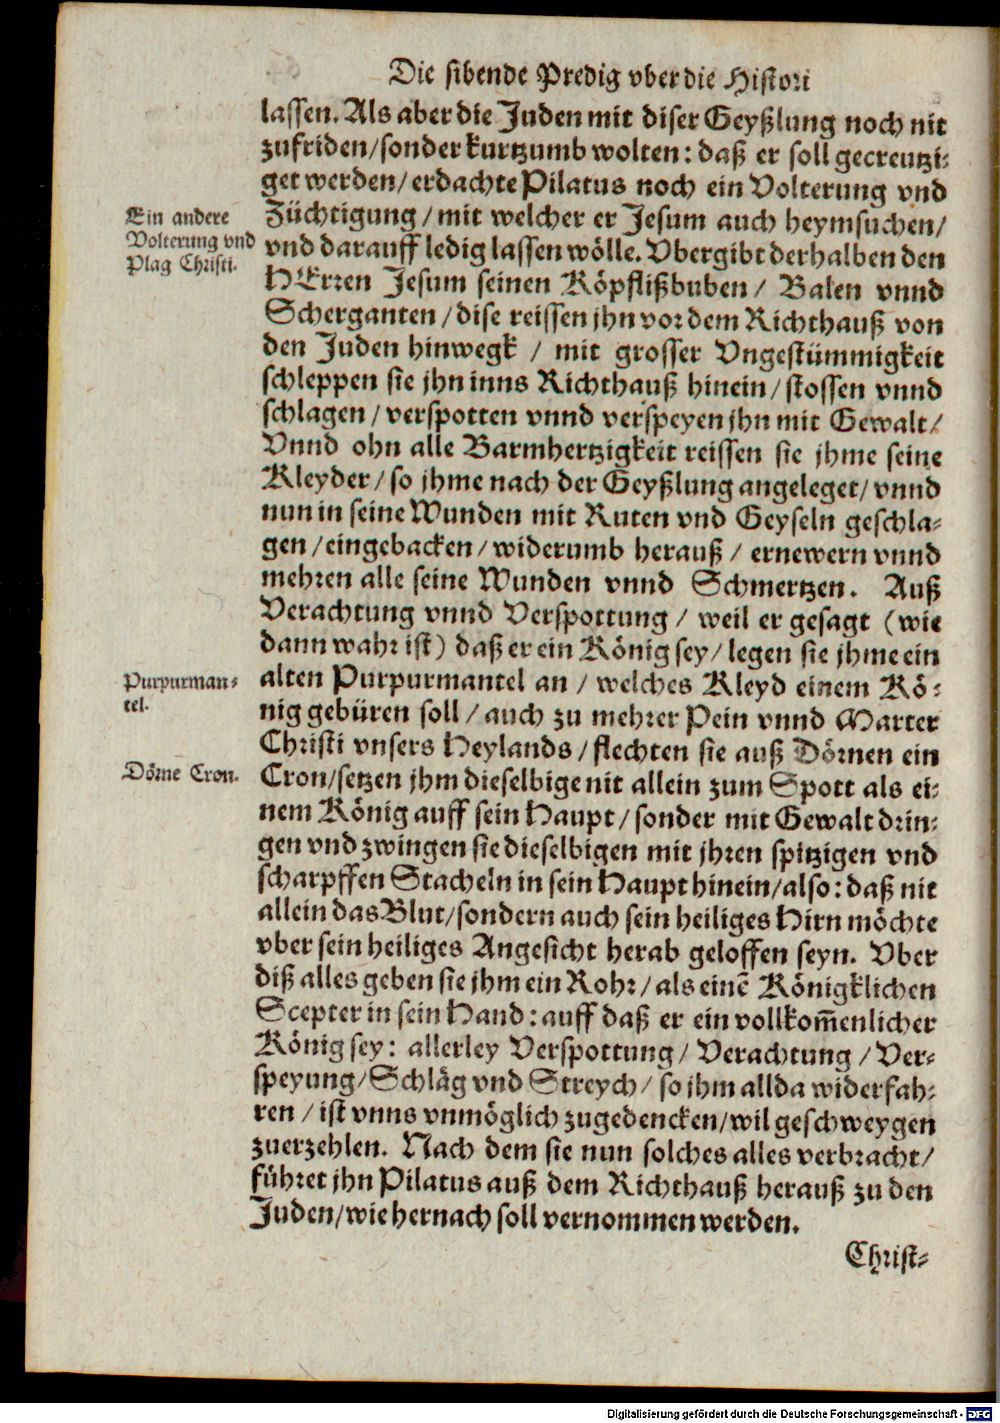 Die sibende Predig vber die Histori
lassen. Als aber die Juden mit diser Geyßlung noch nit
zufriden/sonder kurtzumb wolten: daß er soll gecreutzi-
get werden/ erdachte Pilatus noch ein Volterung vnd
Ein andere
Volterung vnd
Plag Christi.
Züchtigung / mit welcher er Jesum auch heymsuchen/
vnd darauff ledig lassen wölle. Vbergibt derhalben den
HErren Jesum seinen Köpflißbuben / Balen vnnd
Scherganten / dise reissen jhn vor dem Richthauß von
den Juden hinwegk / mit grosser Vngestümmigkeit
schleppen sie jhn inns Richthauß hinein / stossen vnnd
schlagen / verspotten vnnd verspeyen jhn mit Gewalt/
Vnnd ohn alle Barmhertzigkeit reissen sie jhme seine
Kleyder / so jhme nach der Geyßlung angeleget/ vnnd
nun in seine Wunden mit Ruten vnd Geyseln geschla-
gen / eingebacken / widerumb herauß / ernewern vnnd
mehren alle seine Wunden vnnd Schmertzen. Auß
Verachtung vnnd Verspottung / weil er gesagt (wie
dann wahr ist) daß er ein König sey / legen sie jhme ein
Purpurman-
tel.
alten Purpurmantel an / welches Kleyd einem Kö-
nig gebüren soll / auch zu mehrer Pein vnnd Marter
Christi vnsers Heylands / flechten sie auß Dörnen ein
Dörne Cron.
Cron/setzen jhm dieselbige nit allein zum Spott als ei-
nem König auff sein Haupt / sonder mit Gewalt drin-
gen vnd zwingen sie dieselbigen mit jhren spitzigen vnd
scharpffen Stacheln in sein Haupt hinein/also: daß nit
allein das Blut/sondern auch sein heiliges Hirn möchte
vber sein heiliges Angesicht herab geloffen seyn. Vber
diß alles geben sie jhm ein Rohr / als einē Königklichen
Scepter in sein Hand: auff daß er ein vollkom̄enlicher
König sey: allerley Verspottung / Verachtung / Ver-
speyung/Schläg vnd Streych / so jhm allda widerfah-
ren / ist vnns vnmöglich zugedencken/wil geschweygen
zuerzehlen. Nach dem sie nun solches alles verbracht/
führet jhn Pilatus auß dem Richthauß herauß zu den
Juden/wie hernach soll vernommen werden.
Christ-
Digitalisierung gefördert durch die Deutsche Forschungsgemeinschaft - DFG